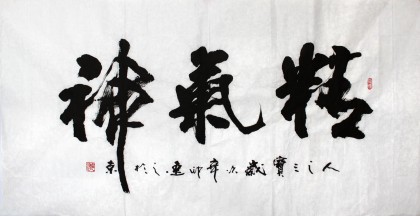 精氣神
人之三寶歲次辛卯連之於京